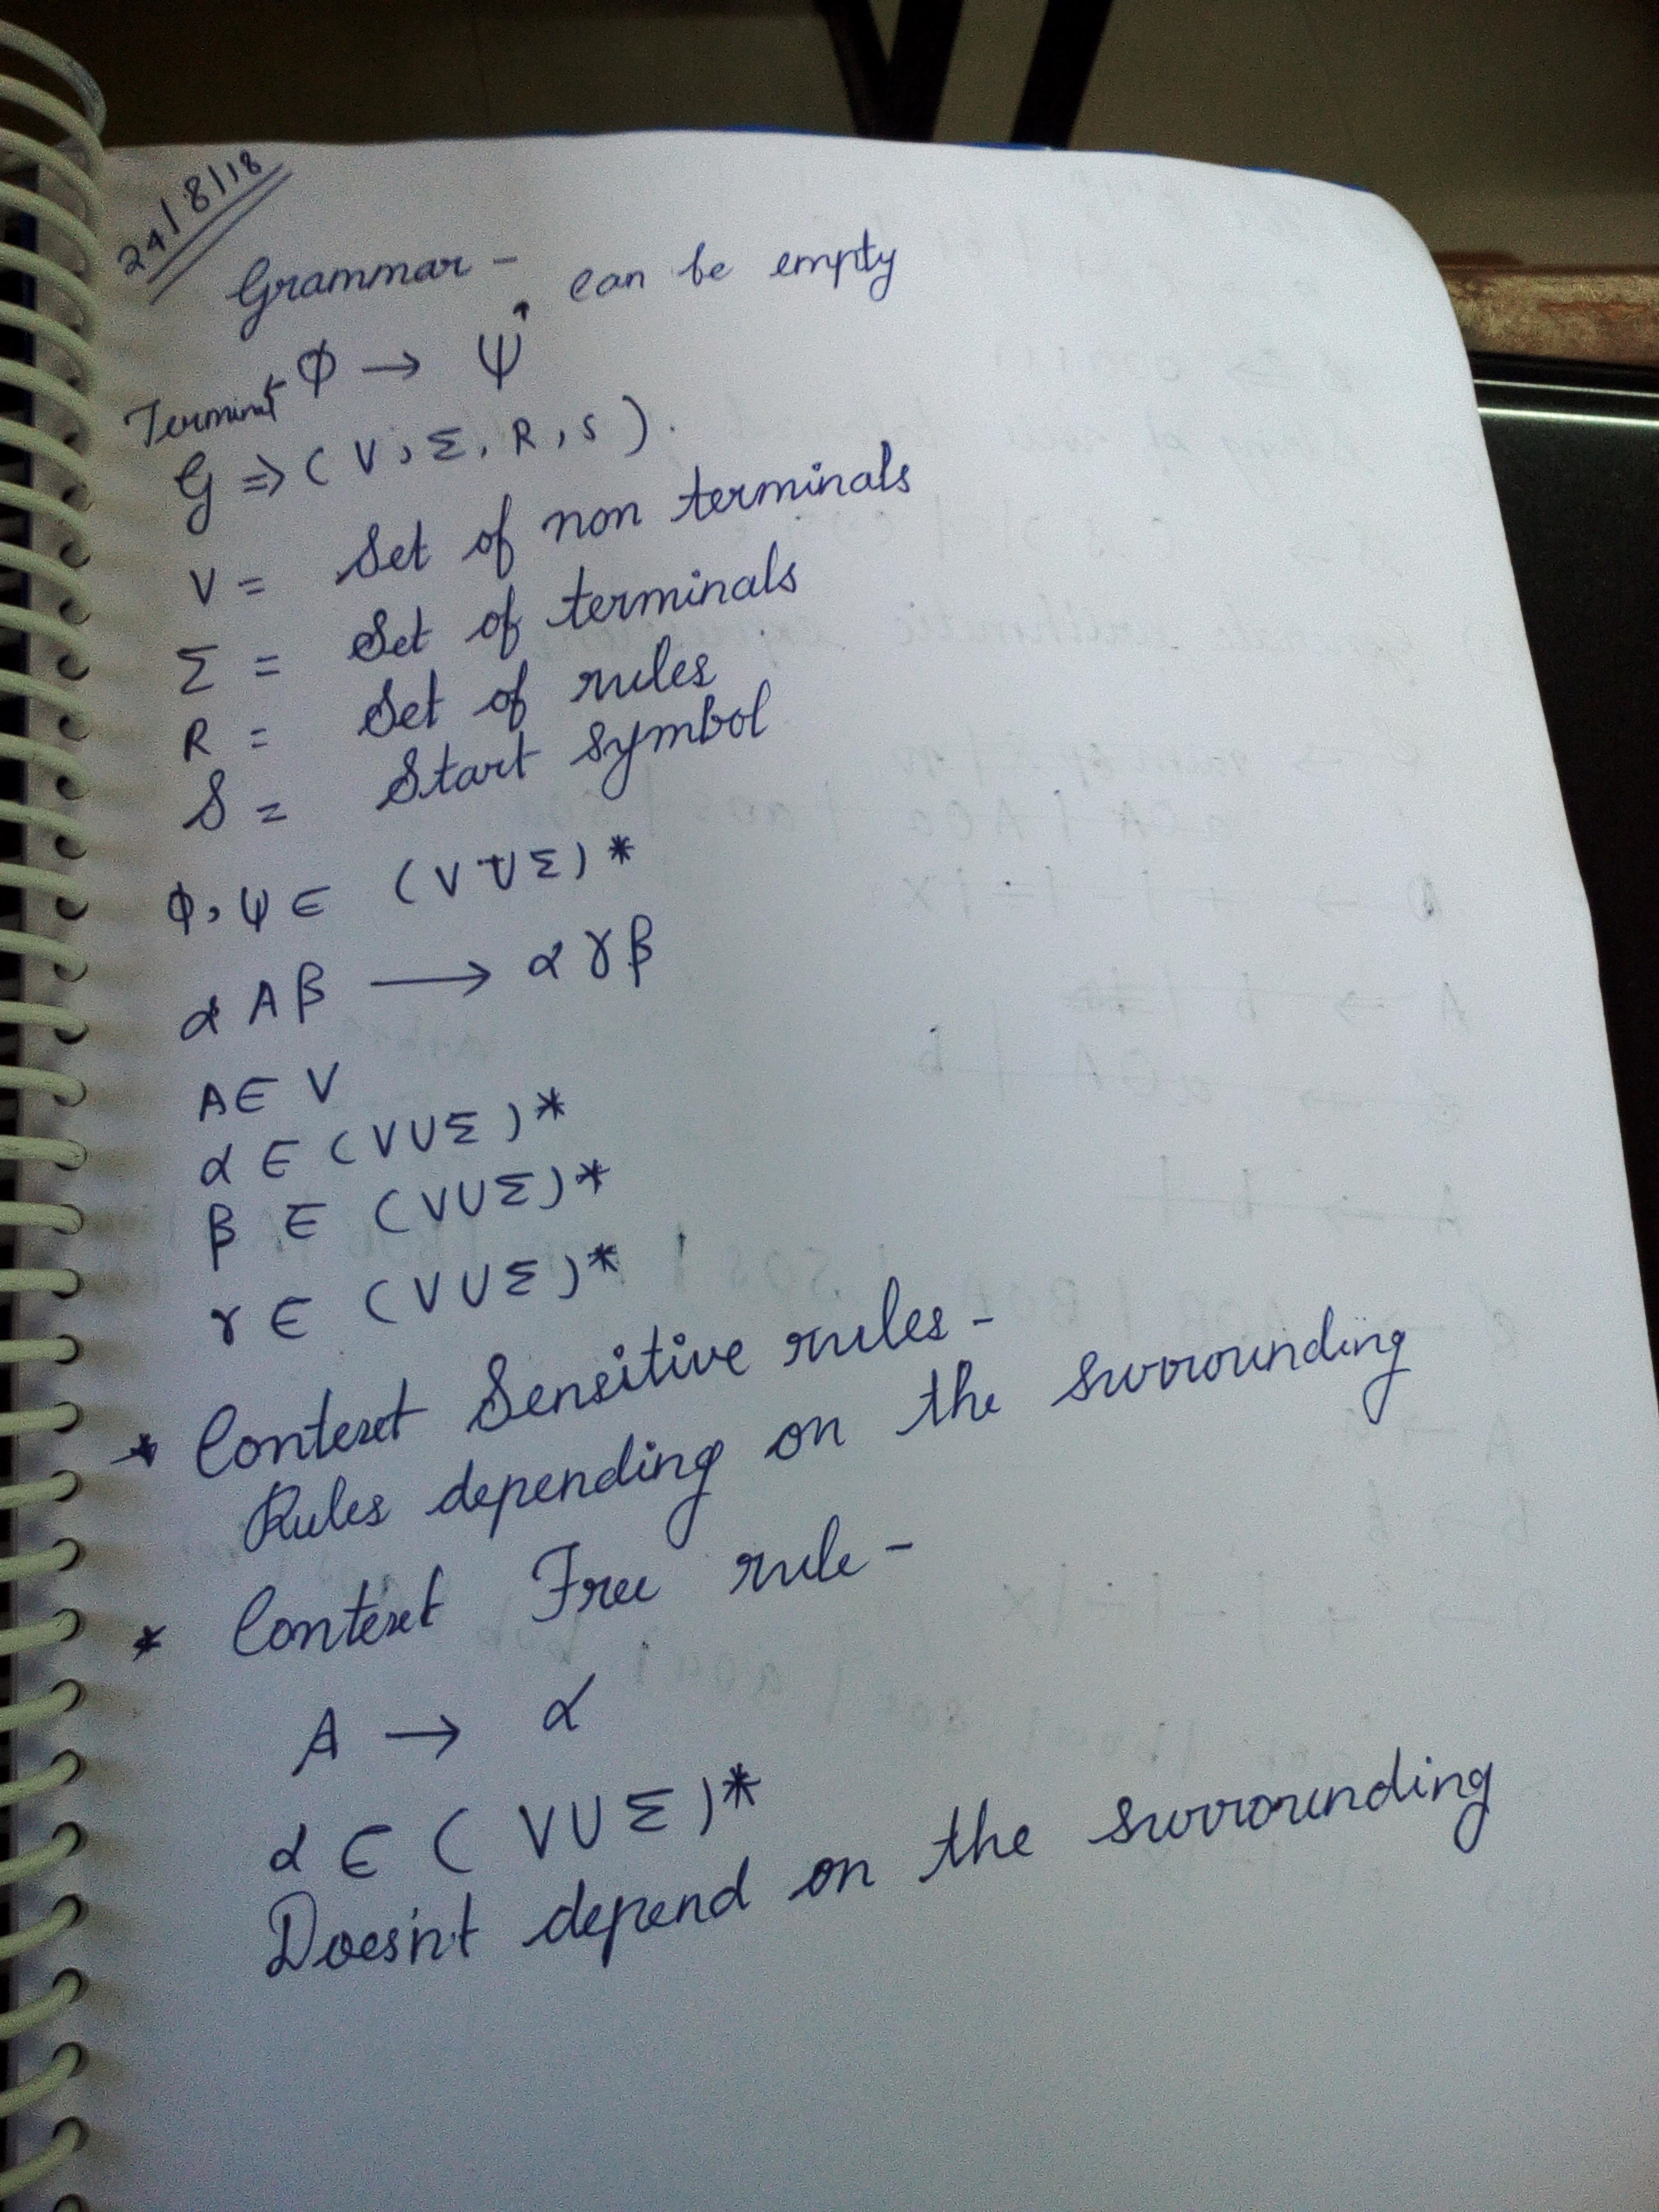 24/8/18
Grammar - can be empty
ϕ → ψ
G ⇒ ( V, Σ, R, S ).
V = Set of non terminals
Σ = Set of terminals
R = Set of rules
S = Start symbol
ϕ, ψ ∈ (V ∪ Σ)*
α A β ⟶ α γ β
A ∈ V
α ∈ (V ∪ Σ)*
β ∈ (V ∪ Σ)*
γ ∈ (V ∪ Σ)*
* Context Sensitive rules -
Rules depending on the surrounding
* Context Free rule -
A → α
α ∈ ( V ∪ Σ)*
Does'nt depend on the surrounding